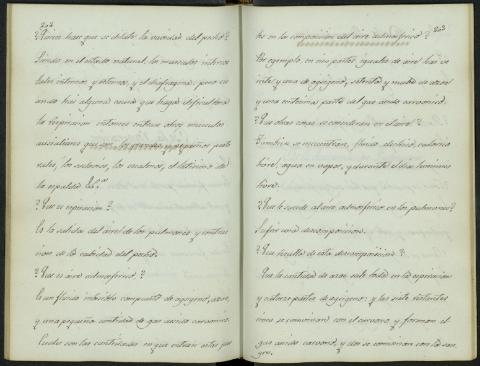 202
? Quien hace que se dilate la cavidad del pecho?
Siendo en el estado natural los musculos interos
tales internos y esternos, y el diafragma; pero cu
ando hay alguna causa que haga dificultosa
la respiracion entonces entran otros musculos
ausiliares que son los grandes y pequeños pecto
rales, los serratos, los escalenos, el
de
la espalda &.ª
? Que es espiracion?
Es la salida del aire de los pulmones y contrac
cion de la cabidad del pecho.
? Que es aire atmosferico?
Es un fluido invisible compuesto de ogsigeno, azoe,
y una pequeña cantidad de gas acido carvonico.
Cuales son las cantidades en que entran estas par
203
tes en la composicion del aire atmosferico?
Por egemplo, en cien partes iguales de aire hai ve
inte y una de ogsigeno, setenta y nueve de azoe
y una centesima parte del gas acido carvonico.
? Que otras cosas se consideran en el aire?
Tambien se encuentran, fluido electrico, calorico
libre, agua en vapor, y durante el dia luminico
libre.
? Que le sucede al aire atmosferico en los pulmones?
Sufrir una descomposicion.
? Que resulta de esta descomposicion?
Que la cantidad de azoe sale toda en la espiracion
y catorce partes de ogsigeno: y las siete restantes
cinco se convinan con el carvono y forman el
gas acido carvonico, y dos se convinan con la san
gre.